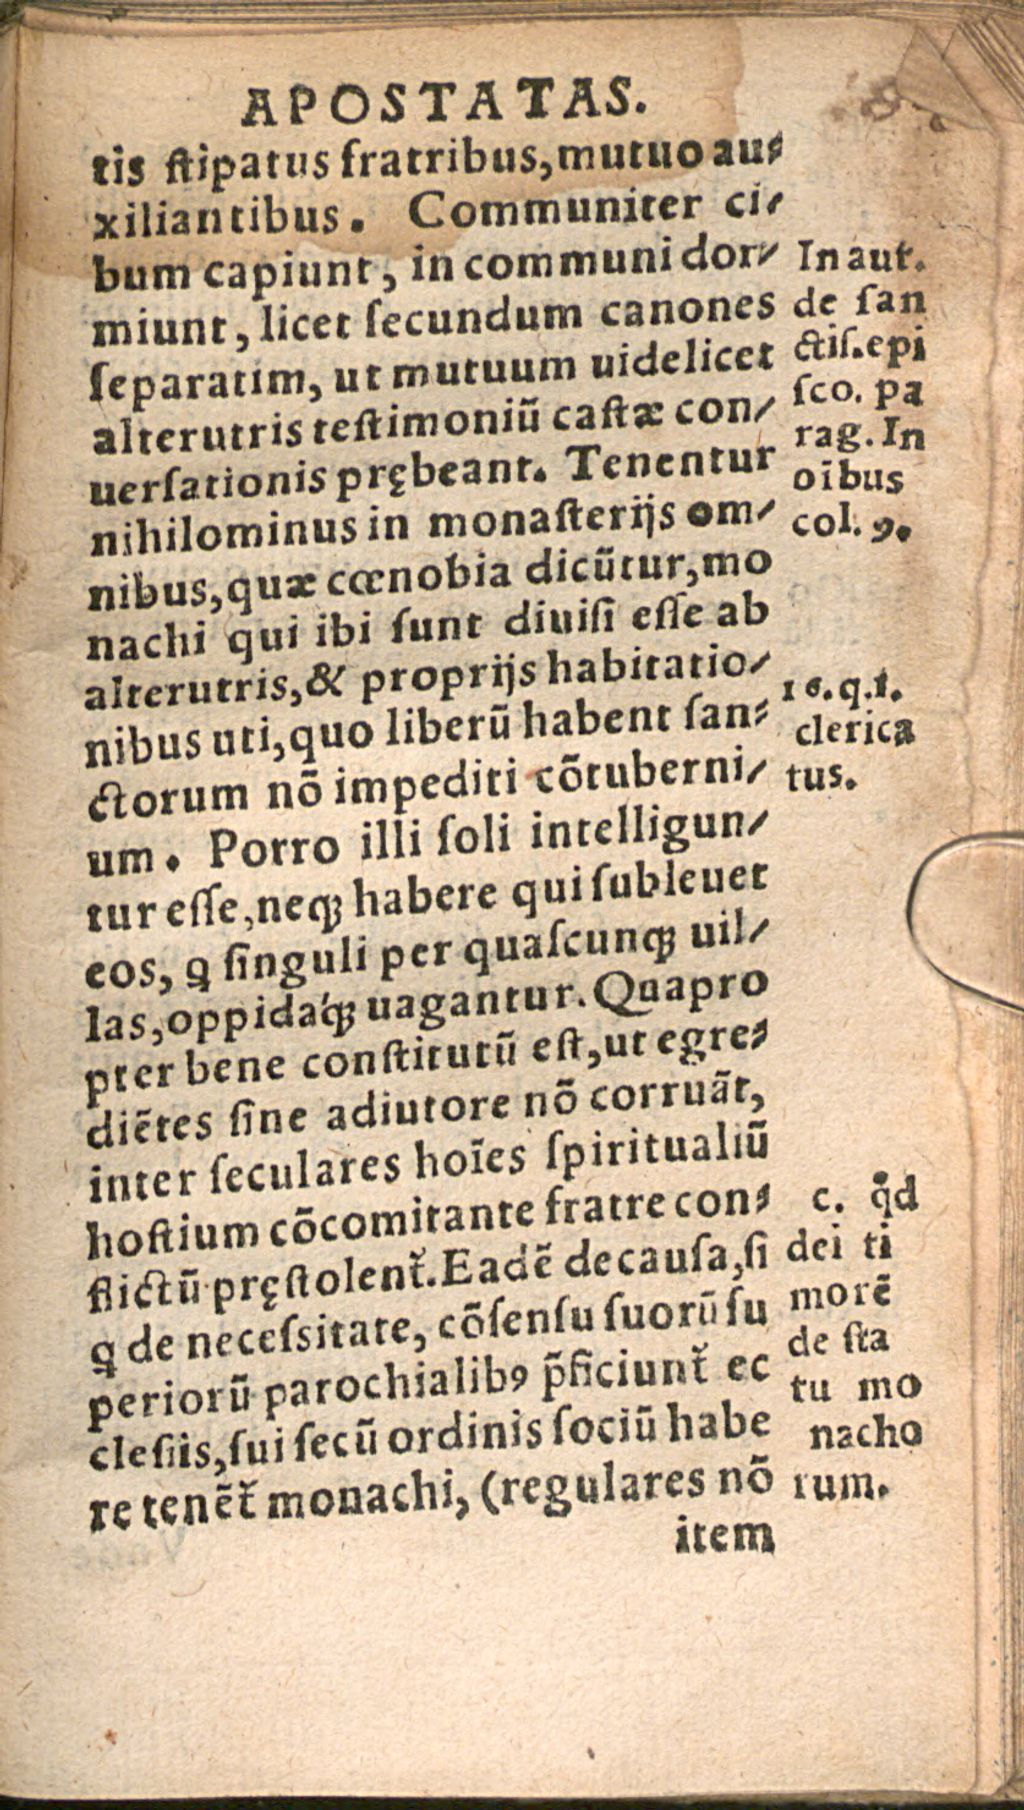 APOSTATAS.
tis ſtipatus fratribus, mutuo au⸗
xiliantibus. Communiter ci⸗
bum capiunt, in communi dor⸗
miunt, licet ſecundum canones
ſeparatim, ut mutuum uidelicet
alterutris teſtimoniū caſtæ con⸗
uerſationis prębeant. Tenentur
nihilominus in monaſterijs om⸗
nibus, quæ cœnobia dicūtur, mo
nachi qui ibi ſunt diuiſi eſſe ab
alterutris, & proprijs habitatio⸗
nibus uti, quo liberū habent ſan⸗
ctorum nō impediti cōtuberni⸗
um. Porro illi ſoli intelligun⸗
tur eſſe, neqꝫ habere qui ſubleuet
eos, ꝗ ſinguli per quaſcunqꝫ uil⸗
las, oppidáqꝫ uagantur. Quapro
pter bene conſtitutū eſt, ut egre⸗
diētes ſine adiutore nō corruāt,
inter ſeculares hoīes ſpiritualiū
hoſtium cōcomitante fratre con⸗
flictū pręſtolent᷑. Eadē de cauſa, ſi
ꝗ de neceſsitate, cōſenſu ſuorū ſu
periorū parochialibꝰ p̄ficiunt᷑ ec
cleſiis, ſui ſecū ordinis ſociū habe
re tenēt᷑ monachi, (regulares nō
item
In aut.
de ſan
ctiſ. epi
ſco. pa
rag. In
oībus
col. 9.
16. q. 1.
clerica
tus.
c. qd
dei ti
morē
de ſta
tu mo
nacho
rum.